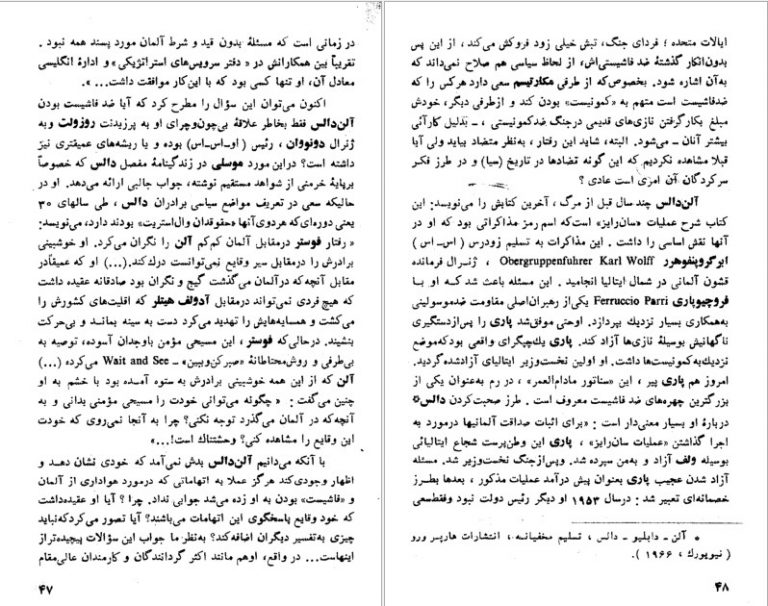 در زمانی است که مسئلهٔ بدون قید و شرط آلمان مورد پسند همه نبود .
تقریباً بین همکارانش در « دفتر سرویس‌های استراتژیکی » و ادارهٔ انگلیسی
معادل آن، او تنها کسی بود که با این‌کار موافقت داشت... ».
اکنون می‌توان این سؤال را مطرح کرد که آیا ضد فاشیست بودن
آلن‌دالس فقط بخاطر علاقهٔ بی‌چون‌وچرای او به پرزیدنت روزولت وبه
ژنرال دونووان ، رئیس ( او-اس-اس) بوده و یا ریشه‌های عمیقتری نیز
داشته است؟ دراین مورد موسلی در زندگینامهٔ مفصل دالس که خصوصاً
برپایهٔ خرمنی از شواهد مستقیم نوشته، جواب جالبی ارائه می‌دهد. او در
حالیکه سعی در تعریف مواضع سیاسی برادران دالس ، طی سالهای ۳۰
یعنی دوره‌ای‌که هردوی‌آنها «حقوقدان وال‌استریت» بودند دارد، می‌نویسد:
« رفتار فوستر درمقابل آلمان کم‌کم آلن را نگران می‌کرد. او خوشبینی
برادرش را درمقابل سیر وقایع نمی‌توانست درك‌کند.(...) او که عمیقاًدر
مقابل آنچه‌که درآلمان می‌گذشت گیج و نگران بود صادقانه عقیده داشت
که هیچ‌فردی نمی‌تواند درمقابل آدولف هیتلر که اقلیت‌های کشورش را
می‌کشت و همسایه‌هایش را تهدید می‌کرد دست به سینه بماند و بی‌حرکت
بنشیند. درحالی‌که فوستر، این مسیحی مؤمن باوجدان آسوده، توصیه به
بی‌طرفی و روش‌محتاطانهٔ «صبرکن‌وببین» ـ Wait and See می‌کرده (...)
آلن که از این همه خوشبینی برادرش به ستوه آمـده بود با خشم به او
چنین می‌گفت : « چگونه می‌توانی خودت را مسیحی مؤمنی بدانی و به
آنچه‌که در آلمان می‌گذرد توجه نکنی؟ چرا به آنجا نمی‌روی که خودت
این وقایع را مشاهده کنی؟ وحشتناك است!...»
با آنکه می‌دانیم آلن‌دالس بدش نمی‌آمد که خودی نشان دهـد و
اظهار وجودی‌کند هرگز عملا به اتهاماتی که درمورد هواداری از آلمان
و «فاشیست» بودن به او زده می‌شد جوابی نداد. چرا ؟ آیا او عقیده‌داشت
که خود وقایع پاسخگوی این اتهامات می‌باشند؟ آیا تصور می‌کردکه‌نباید
چیزی به‌تفسیر دیگران اضافه‌کند؟ به‌نظر ما جواب این سؤالات پیچیده‌تراز
اینهاست... در واقع، اوهم مانند اکثر گردانندگان و کارمندان عالی‌مقام
۴۷
ایالات متحده ؛ فردای جنگ، تبش خیلی زود فروکش می‌کند ، از این پس
بدون‌انکار گذشتهٔ ضد فاشیستی‌اش، از لحاظ سیاسی هم صلاح نمی‌داند که
به‌آن اشاره شود. بخصوص‌که از طرفی مکارتیسم سعی دارد هرکس را که
ضدفاشیست است متهم به «کمونیست» بودن کند و ازطرفی دیگر، خودش
مبلغ بکارگرفتن نازی‌های قدیمی درجنگ ضدکمونیستی ، ـ بدلیل کارآئی
بیشتر آنان ـ می‌شود. البته، شاید این رفتار، به‌نظرمتضاد بیاید ولی آیا
قبلا مشاهده نکردیم که این گونه تضادها در تاریخ (سیا) و در طرز فکـر
سرکردگان آن امری است عادی ؟
آلن‌دالس چند سال قبل از مرگ ، آخرین کتابش را می‌نویسد: این
کتاب شرح عملیات «سان‌رایز» است‌که اسم رمز مذاکراتی بود که او در
آنها نقش اساسی را داشت . این مذاکرات به تسلیم زودرس (اس-اس)
ابرگروپنفوهرر Obergruppenfuhrer Karl Wolff ، ژنـرال فرمانده
قشون آلمانی در شمال ایتالیا انجامید. این مسئله باعث شـد کـه او بـا
فروچیوپاری Ferruccio Parri یکی‌از رهبران‌اصلی مقاومت ضدموسولینی
به‌همکاری بسیار نزدیك بپردازد. اوحتی موفق‌شد پاری را پس‌ازدستگیری
ناگهانیش بوسیلهٔ نازی‌ها آزاد کند. پاری یك‌چپگرای واقعی بودکه‌موضع
نزدیك‌به‌کمونیست‌ها داشت. او اولین نخست‌وزیر ایتالیای آزادشده‌گردید.
امروز هم پاری پیر ، این «سناتور مادام‌العمر» ، در رم به‌عنوان یکی از
بزرگترین چهره‌های ضد فاشیست معروف است . طرز صحبت‌کردن دالس*
دربارهٔ او بسیار معنی‌دار است : «برای اثبات صداقت آلمانیها درمورد به
اجرا گذاشتن «عملیات سان‌رایز» ، پاری این وطن‌پرست شجاع ایتالیائی
بوسیله ولف آزاد و به‌من سپرده شد. وپس‌ازجنگ نخست‌وزیر شد. مسئله
آزاد شدن عجیب پاری بعنوان پیش درآمد عملیات مذکور ، بعدها بطـرز
خصمانه‌ای تعبیر شد : درسال ۱۹۵۳ او دیگر رئیس دولت نبود وفقط‌سعی
* آلن ـ دابلیو ـ دالس ، تسلیم مخفیانه ، انتشارات هارپر ورو
( نیویورك ، ۱۹۶۶ ).
۴۸